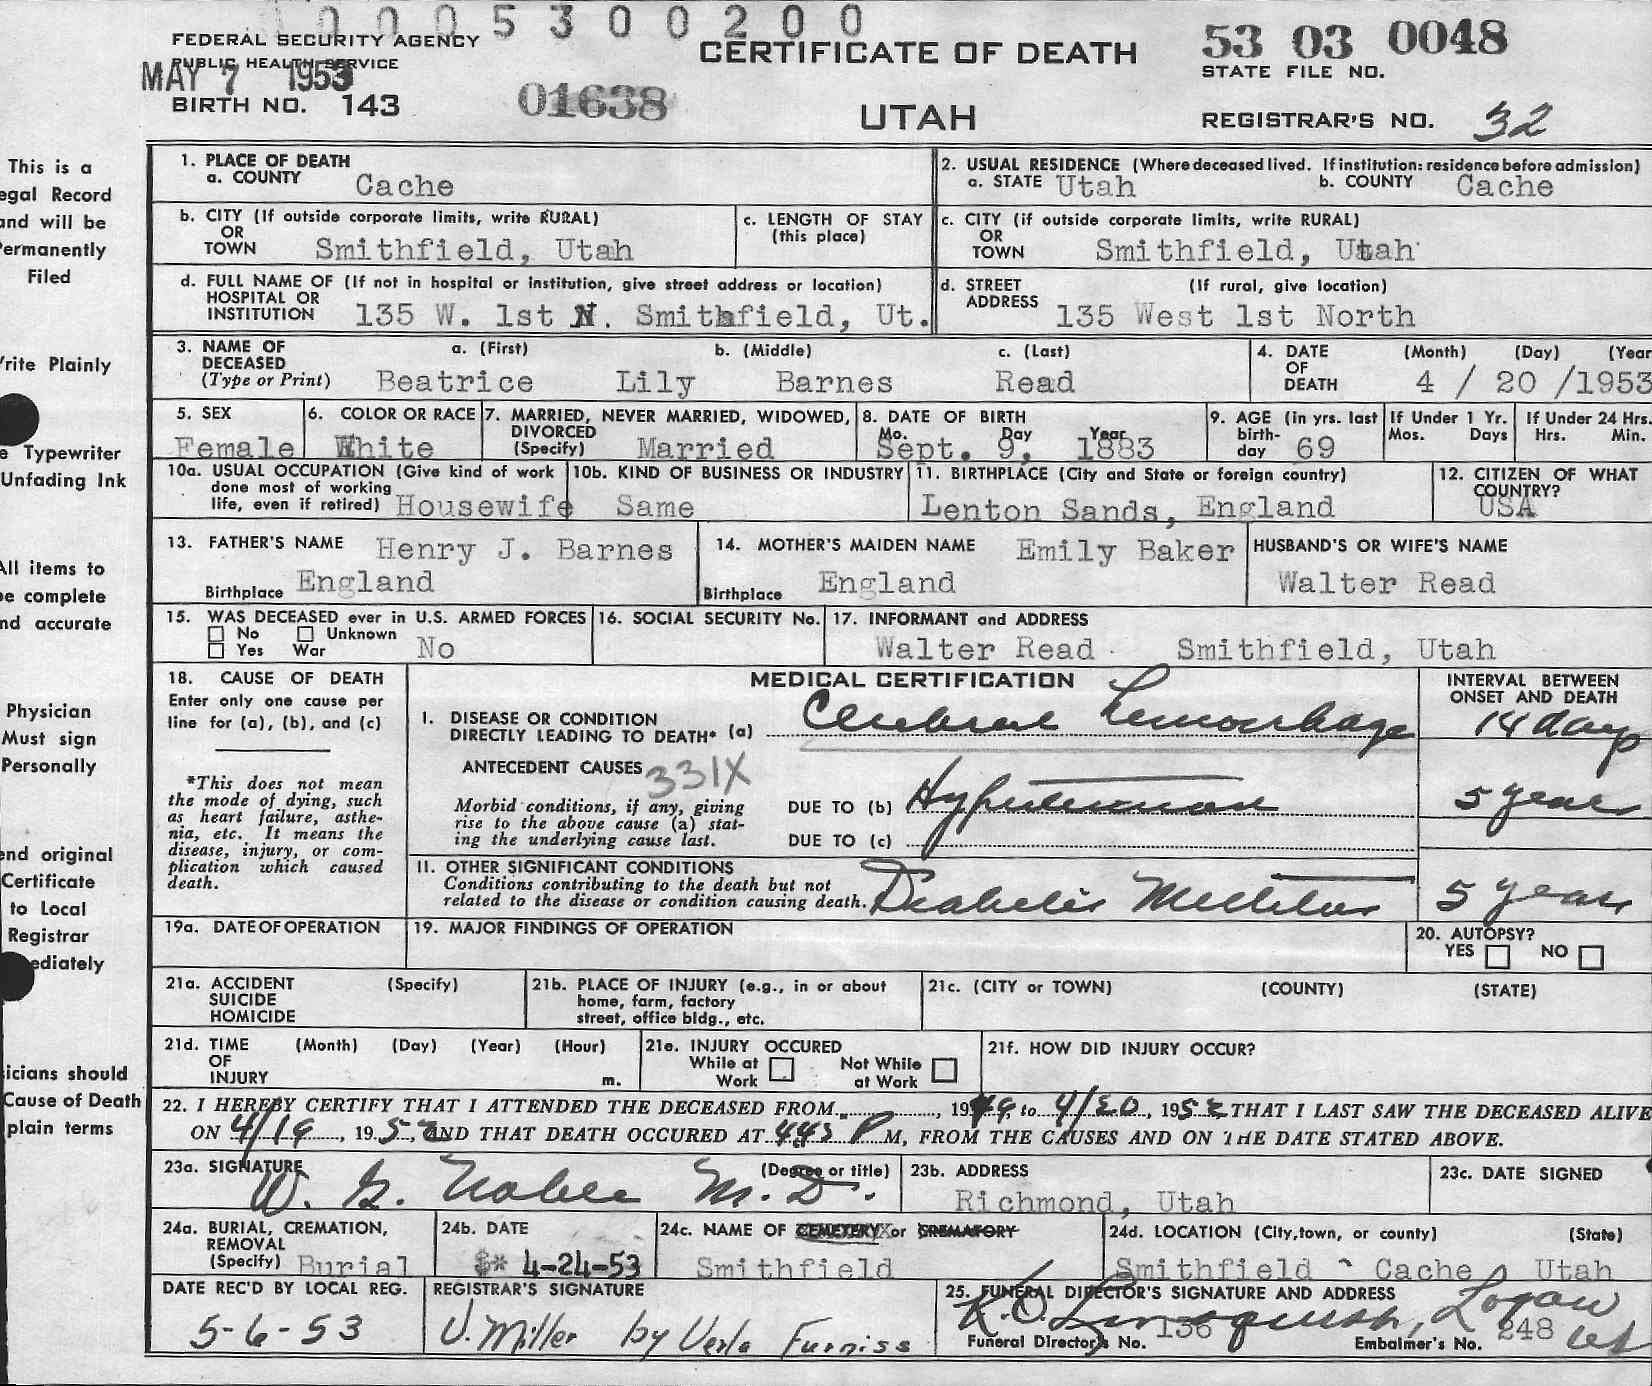 0005300200
FEDERAL SECURITY AGENCY
PUBLIC HEALTH SERVICE
MAY 7 1953
BIRTH NO. 143
01638
CERTIFICATE OF DEATH
UTAH
53 03 0048
STATE FILE NO.
REGISTRAR'S NO. 32
This is a
egal Record
and will be
Permanently
Filed
rite Plainly
e Typewriter
Unfading Ink
All items to
be complete
nd accurate
Physician
Must sign
Personally
end original
Certificate
to Local
Registrar
ediately
icians should
Cause of Death
plain terms
1. PLACE OF DEATH
a. COUNTY Cache
2. USUAL RESIDENCE (Where deceased lived. If institution: residence before admission)
a. STATE Utah b. COUNTY Cache
b. CITY (If outside corporate limits, write RURAL)
OR
TOWN Smithfield, Utah
c. LENGTH OF STAY
(this place)
c. CITY (if outside corporate limits, write RURAL)
OR
TOWN Smithfield, Utah
d. FULL NAME OF (If not in hospital or institution, give street address or location)
HOSPITAL OR
INSTITUTION 135 W. 1st N. Smithfield, Ut.
d. STREET (If rural, give location)
ADDRESS 135 West 1st North
3. NAME OF DECEASED
(Type or Print)
a. (First) b. (Middle) c. (Last)
Beatrice Lily Barnes Read
4. DATE OF DEATH (Month) (Day) (Year
4 / 20 /1953
5. SEX
Female
6. COLOR OR RACE
White
7. MARRIED, NEVER MARRIED, WIDOWED,
DIVORCED
(Specify) Married
8. DATE OF BIRTH
Mo. Day Year
Sept. 9, 1883
9. AGE (in yrs. last
birth-
day 69
If Under 1 Yr.
Mos. Days
If Under 24 Hrs.
Hrs. Min.
10a. USUAL OCCUPATION (Give kind of work
done most of working
life, even if retired) Housewife
10b. KIND OF BUSINESS OR INDUSTRY
Same
11. BIRTHPLACE (City and State or foreign country)
Lenton Sands, England
12. CITIZEN OF WHAT
COUNTRY?
USA
13. FATHER'S NAME Henry J. Barnes
Birthplace England
14. MOTHER'S MAIDEN NAME Emily Baker
Birthplace England
HUSBAND'S OR WIFE'S NAME
Walter Read
15. WAS DECEASED ever in U.S. ARMED FORCES
No Unknown
Yes War No
16. SOCIAL SECURITY No.
17. INFORMANT and ADDRESS
Walter Read Smithfield, Utah
18. CAUSE OF DEATH
Enter only one cause per
line for (a), (b), and (c)
*This does not mean
the mode of dying, such
as heart failure, asthe-
nia, etc. It means the
disease, injury, or com-
plication which caused
death.
MEDICAL CERTIFICATION
INTERVAL BETWEEN
ONSET AND DEATH
I. DISEASE OR CONDITION
DIRECTLY LEADING TO DEATH* (a) Cerebral hemorrhage 14 days
ANTECEDENT CAUSES 331X
Morbid conditions, if any, giving
rise to the above cause (a) stat-
ing the underlying cause last.
DUE TO (b) Hypertension 5 years
DUE TO (c)
II. OTHER SIGNIFICANT CONDITIONS
Conditions contributing to the death but not
related to the disease or condition causing death. Diabetes Mellitus 5 years
19a. DATE OF OPERATION
19. MAJOR FINDINGS OF OPERATION
20. AUTOPSY?
YES NO
21a. ACCIDENT (Specify)
SUICIDE
HOMICIDE
21b. PLACE OF INJURY (e.g., in or about
home, farm, factory
street, office bldg., etc.
21c. (CITY or TOWN) (COUNTY) (STATE)
21d. TIME (Month) (Day) (Year) (Hour)
OF
INJURY m.
21e. INJURY OCCURED
While at Work Not While at Work
21f. HOW DID INJURY OCCUR?
22. I HEREBY CERTIFY THAT I ATTENDED THE DECEASED FROM , 1949 to 4/20, 195 THAT I LAST SAW THE DECEASED ALIVE
ON 4/19, 195 AND THAT DEATH OCCURED AT 445 P M, FROM THE CAUSES AND ON THE DATE STATED ABOVE.
23a. SIGNATURE (Degree or title)
W. G. Noble M.D.
23b. ADDRESS
Richmond, Utah
23c. DATE SIGNED
24a. BURIAL, CREMATION,
REMOVAL
(Specify) Burial
24b. DATE
4-24-53
24c. NAME OF CEMETERY or CREMATORY
Smithfield
24d. LOCATION (City, town, or county) (State)
Smithfield Cache Utah
DATE REC'D BY LOCAL REG.
5-6-53
REGISTRAR'S SIGNATURE
V. Miller by Verla Furniss
25. FUNERAL DIRECTOR'S SIGNATURE AND ADDRESS
K.O. Lindquist, Logan Ut
Funeral Director's No. 136 Embalmer's No. 248